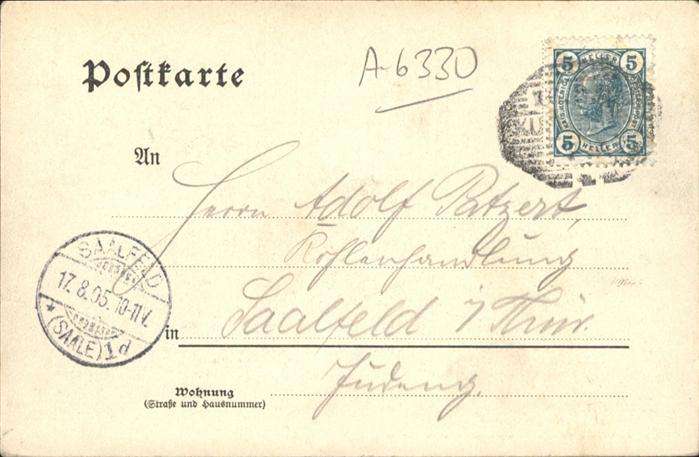 Postkarte
A-6330
5 HELLER 5
5 HELLER 5
An
Herrn Adolf Patzert,
Kohlenhandlung
SAALFELD
17.8.05. 10-11V.
* (SAALE) 1d
in Saalfeld i/Thür.
Wohnung
(Straße und Hausnummer)